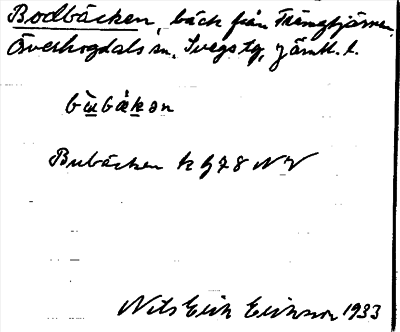 Bodbäcken, bäck från Fämgtjärnen,
Överhogdals sn, Svegs tg, Jämtl. l.
bùbäkən
Bubäcken k bj 78 NV
Nils Erik Eriksson 1933